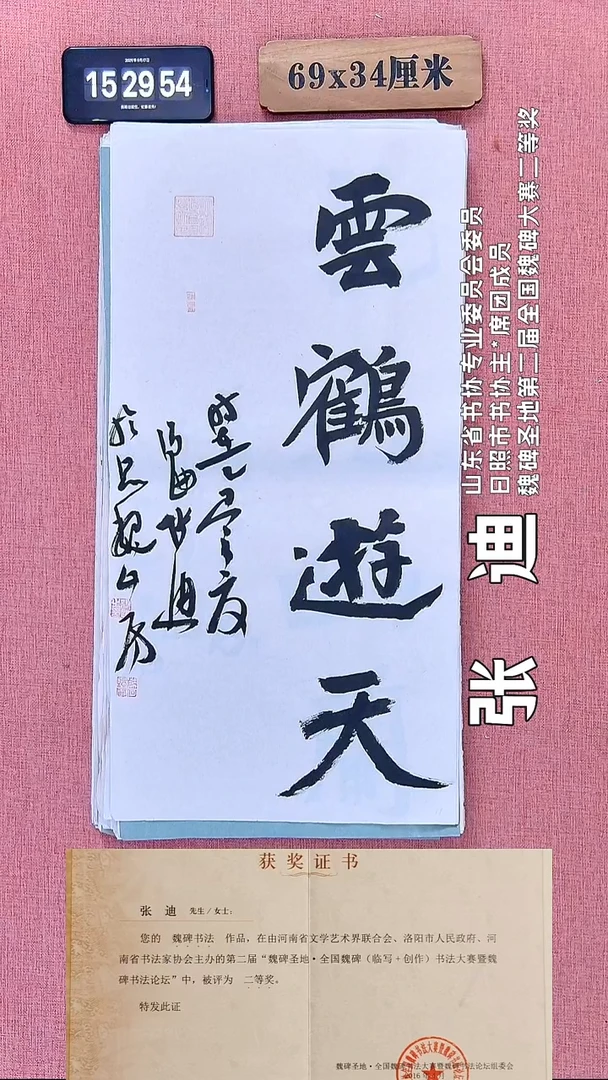 15 29 54
69x34厘米
雲鶴遊天
山东省书协专业委员会委员
日照市书协主*席团成员
魏碑圣地第二届全国魏碑大赛二等奖
张 迪
获奖证书
张 迪 先生/女士:
您的 魏碑书法 作品,在由河南省文学艺术界联合会、洛阳市人民政府、河
南省书法家协会主办的第二届“魏碑圣地·全国魏碑(临写+创作)书法大赛暨魏
碑书法论坛”中,被评为 二等奖。
特发此证
魏碑圣地·全国魏碑书法大赛暨魏碑书法论坛组委会